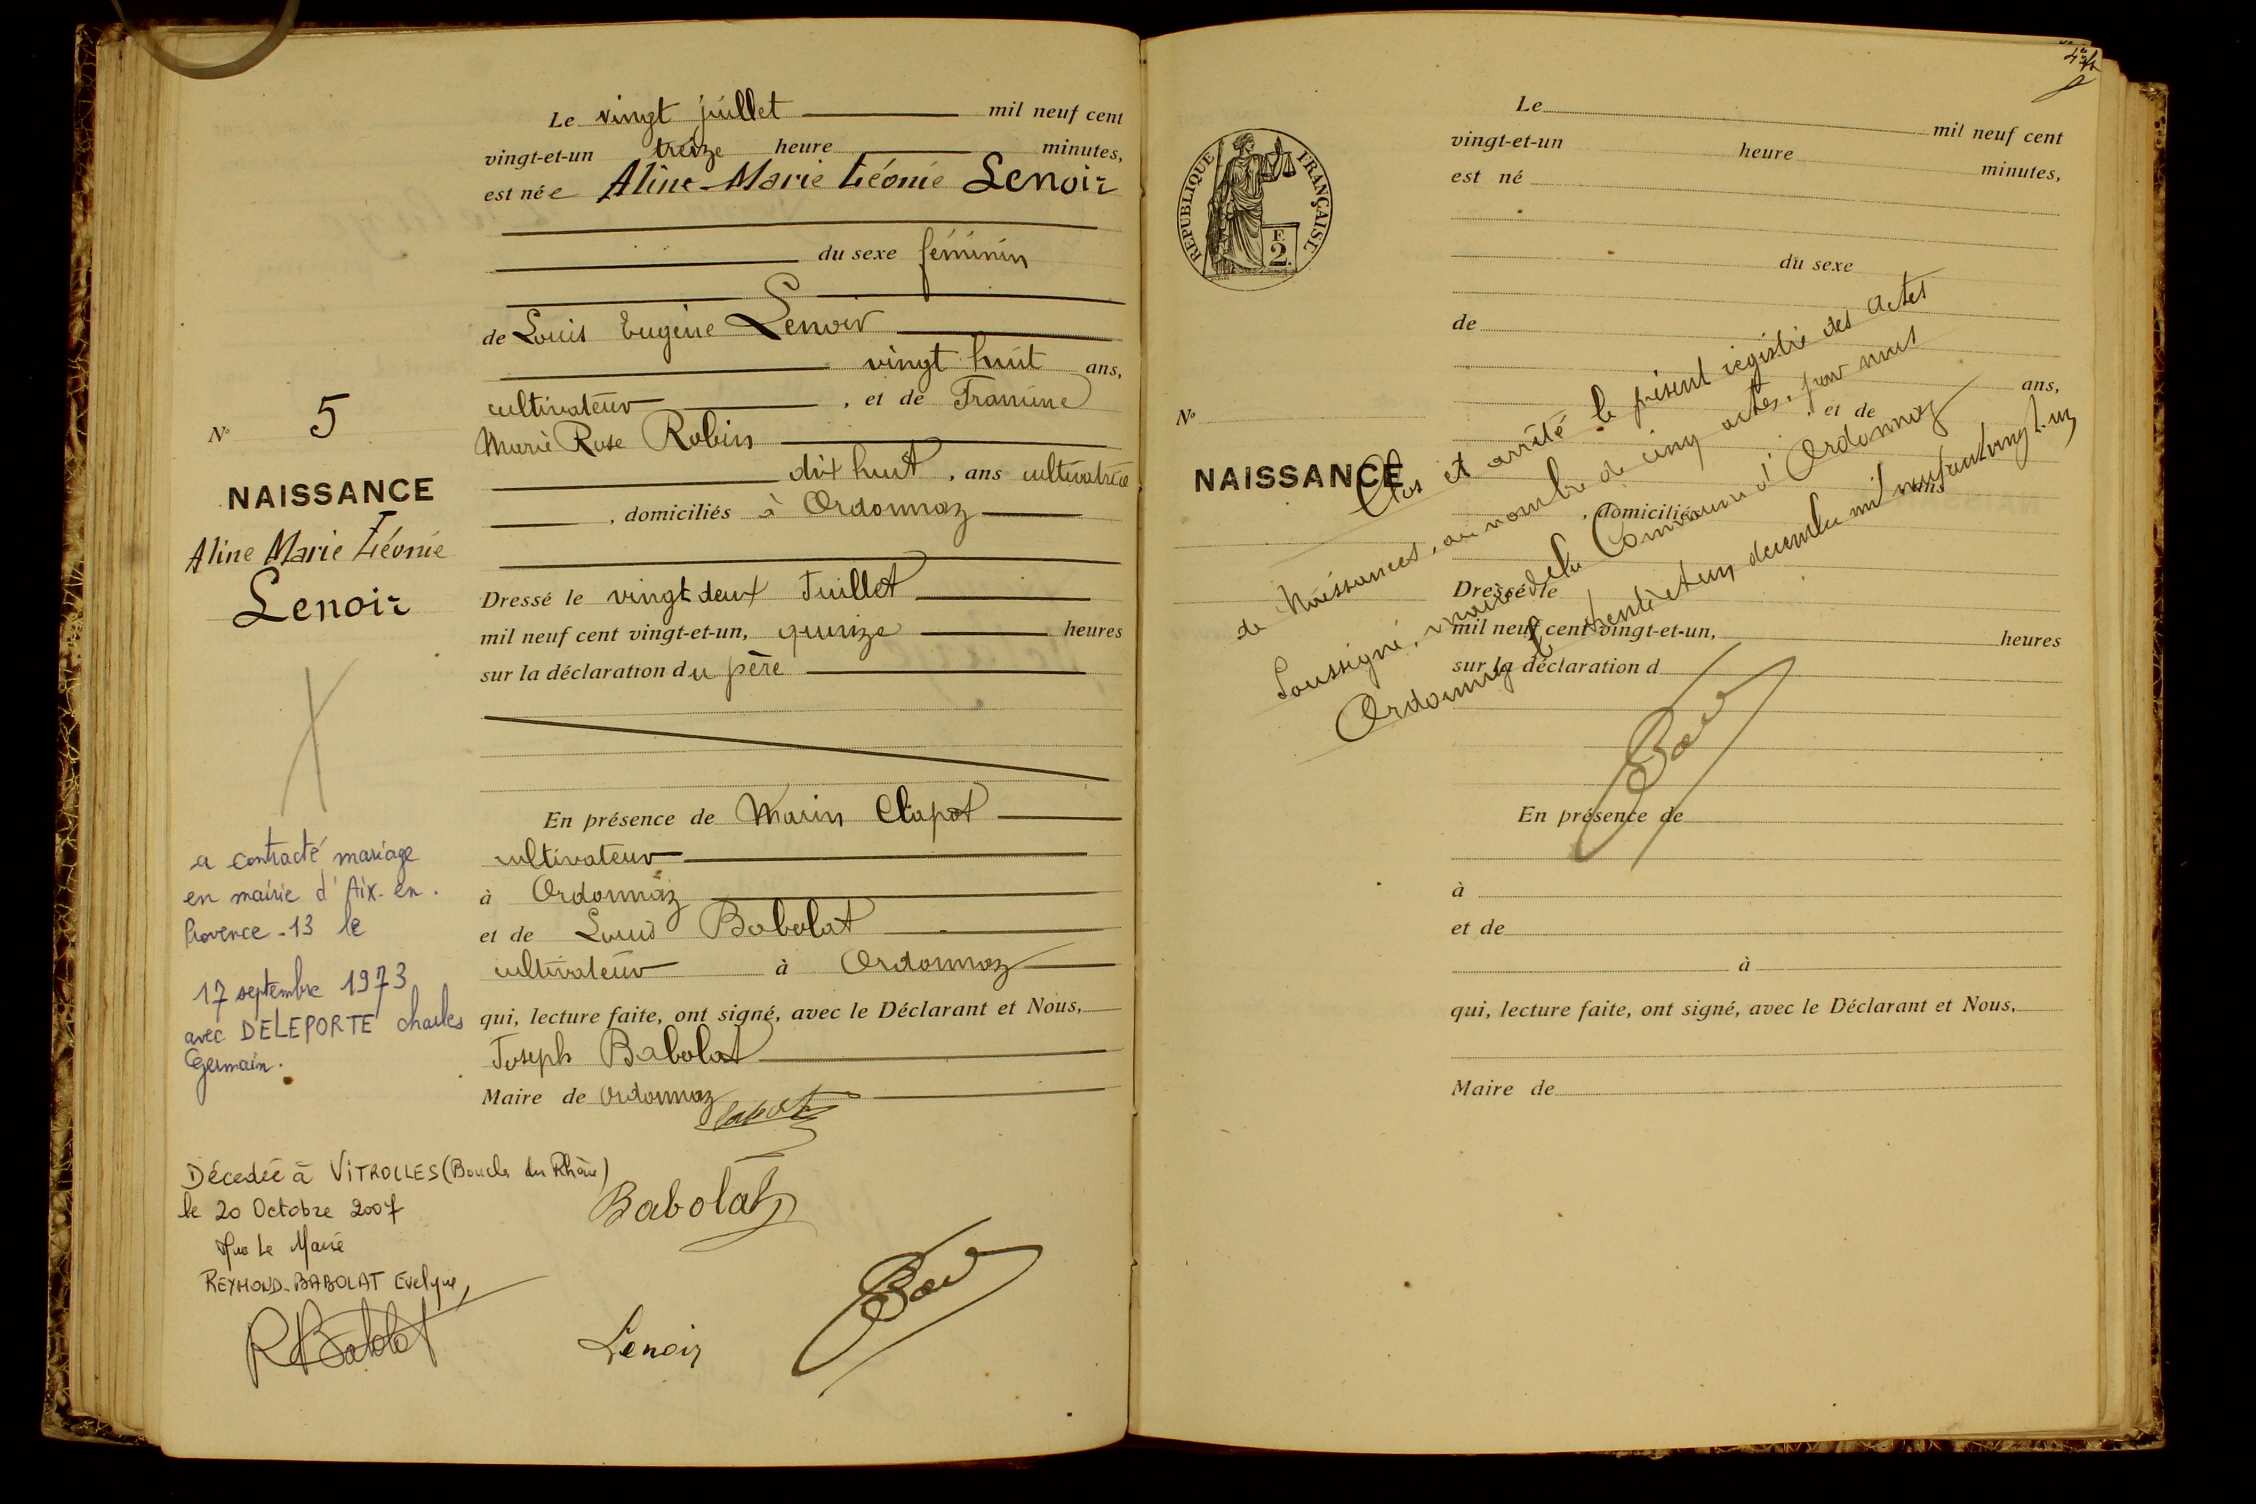 Le vingt juillet mil neuf cent
vingt-et-un treize heure minutes,
est née Aline-Marie Léonie Lenoir
du sexe féminin
de Louis Eugène Lenoir
vingt huit ans,
cultivateur , et de Francine
Marie Rose Robin
dix huit , ans cultivatrice
, domiciliés à Ordonnaz
Dressé le vingt deux Juillet
mil neuf cent vingt-et-un, quinze heures
sur la déclaration du père
En présence de Marin Clapot
cultivateur
à Ordonnaz
et de Louis Babolat
cultivateur à Ordonnaz
qui, lecture faite, ont signé, avec le Déclarant et Nous,
Joseph Babolat
Maire de Ordonnaz
Clapot
Babolat
Lenoir
Bab
N° 5
NAISSANCE
Aline Marie Léonie
Lenoir
a contracté mariage
en mairie d'Aix-en.
Provence-13 le
17 septembre 1973
avec DELEPORTE charles
Germain.
Décedée à VITROLLES (Bouches du Rhône)
le 20 Octobre 2007
Le Maire
REYMOND-BABOLAT Evelyne,
RBabolat
REPUBLIQUE FRANÇAISE
F.
2.
N°
NAISSANCE
Le mil neuf cent
vingt-et-un heure minutes,
est né
du sexe
de
ans,
, et de
, ans
, domiciliés
Dressé le
mil neuf cent vingt-et-un, heures
sur la déclaration d
En présence de
à
et de
à
qui, lecture faite, ont signé, avec le Déclarant et Nous,
Maire de
Clos et arrêté le présent registre des actes
de Naissances, au nombre de cinq actes, par nous
Soussigné, maire de la Commune d'Ordonnaz
Ordonnaz le trente et un decembre mil neuf cent vingt-un